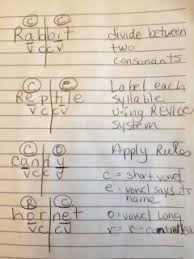 C C
Rabbit
vc cv
divide between
two
consonants
C e
Reptile
vc cv
Label each
syllable
using REVLOC
system
C O
candy
vc cv
Apply Rules
c = short vowel
e = vowel says its
name
R C
hornet
vc cv
o = vowel long
r = r-controlled